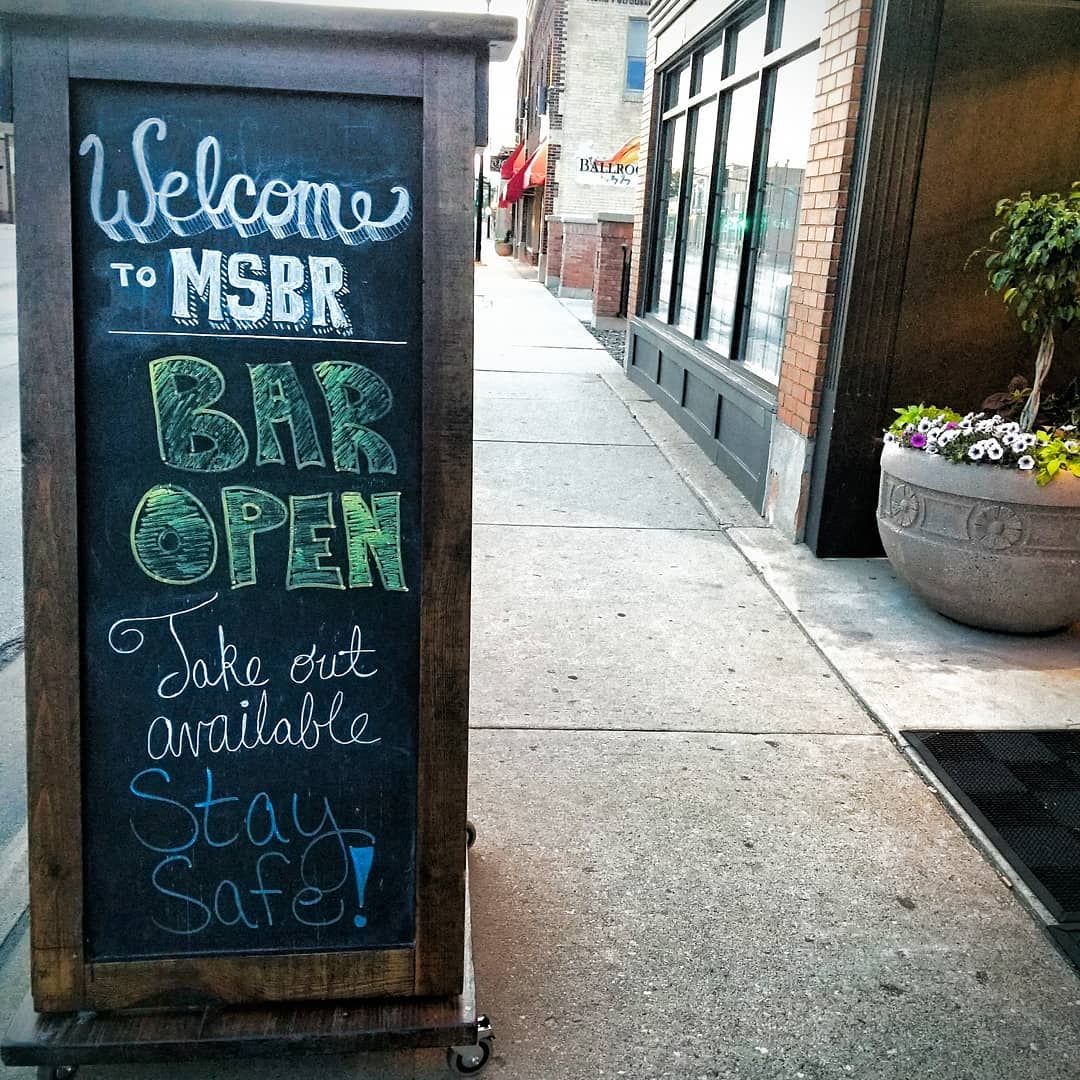 Welcome
TO MSBR
BAR
OPEN
Take out
available
Stay
Safe!
BALLROO